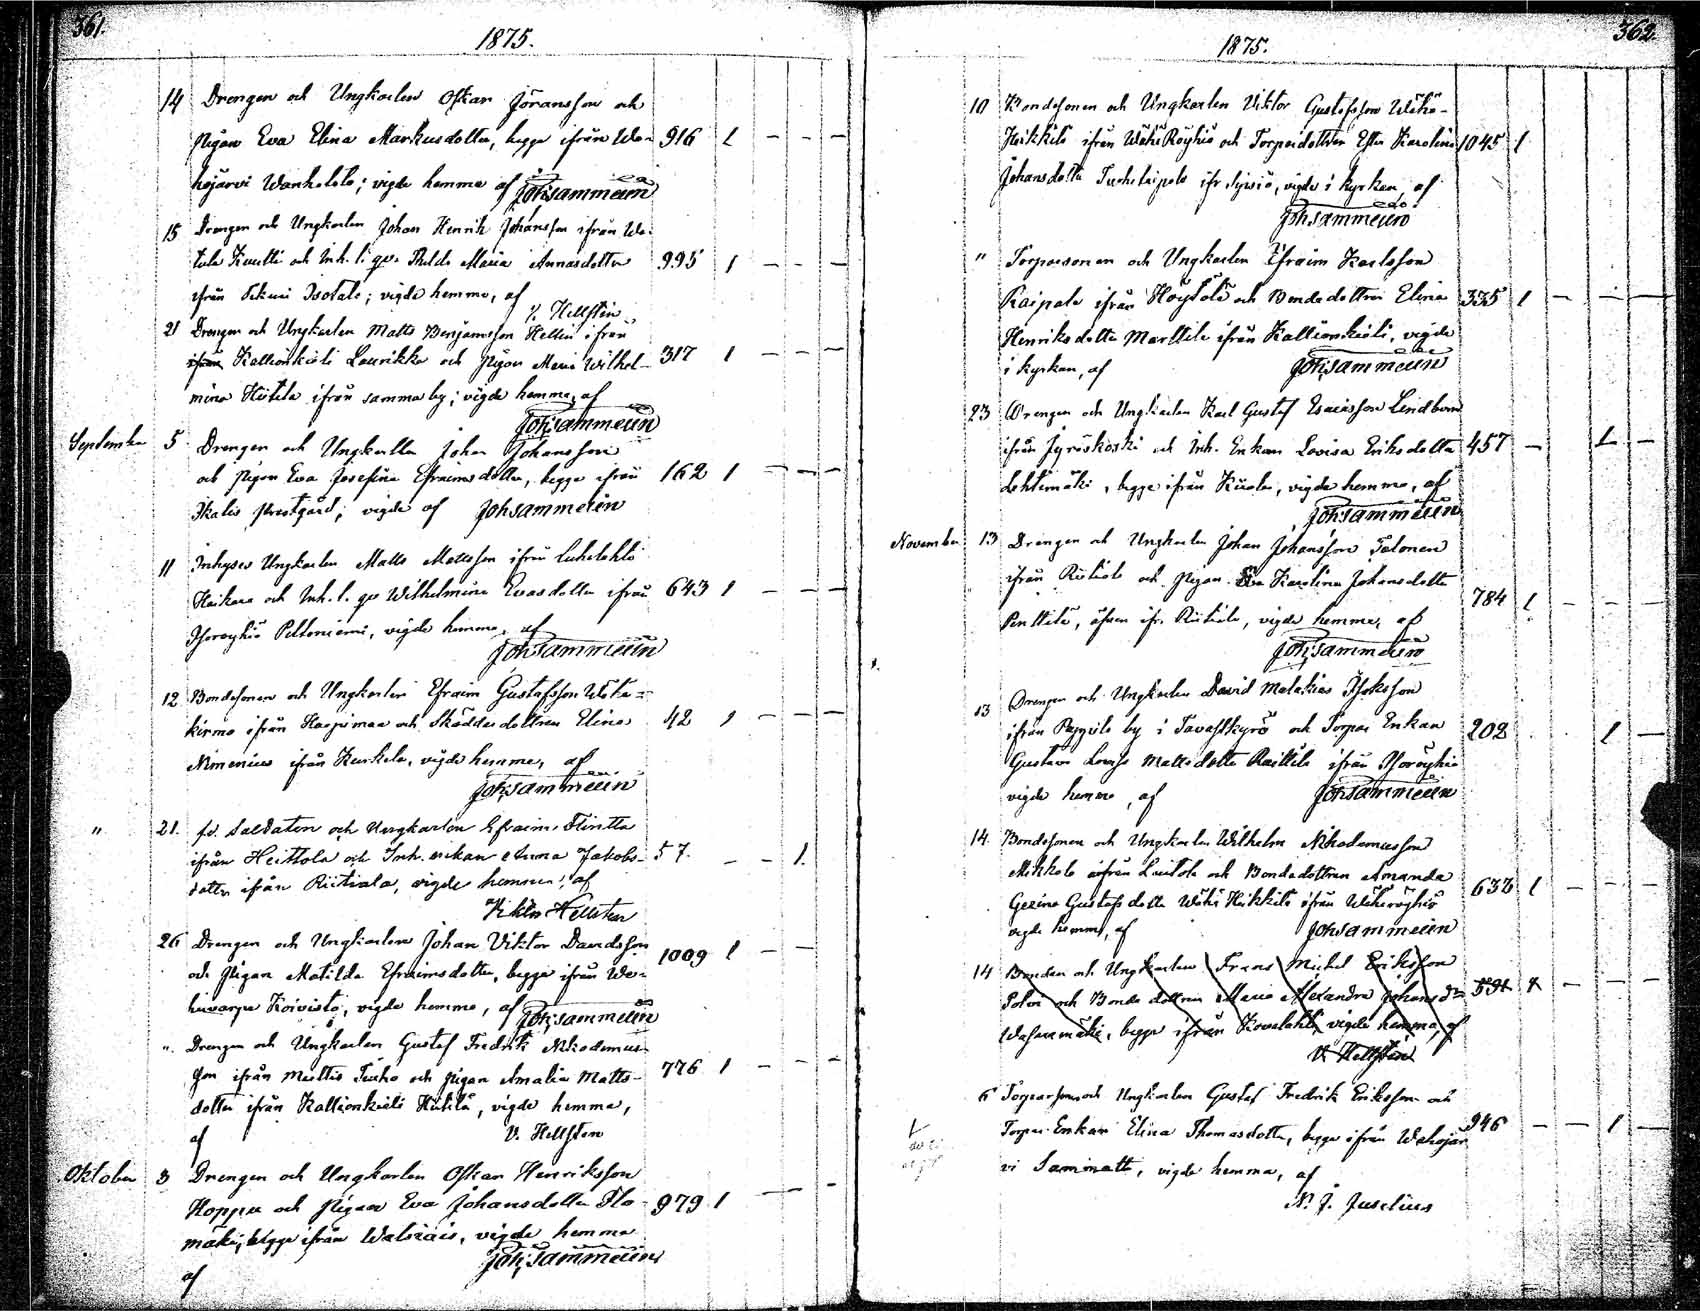 361.
1875.
14 Drengen och Ungkarlen Oskar Göransson och
Pigan Eva Elina Markusdotter, begge ifrån Wa- 916 1 - - -
hojärvi Wanhatalo; vigde hemma af Joh. Sammelin
15 Drengen och Ungkarlen Johan Henrik Johansson ifrån Wa-
tula Knutti och Inh. l. qv. Thilda Maria Annasdotter 995 1 - - -
ifrån Sikuri Isotalo; vigde hemma, af
V. Hellstén
21 Drengen och Ungkarlen Matts Benjamsson Hellin ifrån
ifrån Kallionkieli Laurikka och Pigan Maria Wilhel- 317 1 - - -
mina Hiitola ifrån samma by; vigde hemma, af
Joh. Sammelin
September 5 Drengen och Ungkarlen Johan Johansson
och Pigan Eva Josefina Efraimsdotter, begge ifrån 162 1 - - -
Ikalis Prestgård; vigde af Joh. Sammelin
11 Inhyses Ungkarlen Matts Mattsson ifrån Luhalahti
Haikara och Inh. l. qv Wilhelmina Evasdotter ifrån 643 1 - - -
Osoroyhiö Peltoniemi, vigde hemma, af
Joh. Sammelin
12 Bondesonen och Ungkarlen Efraim Gustafsson
ifrån Karpimaa och Skäddaredottren Elina 42 1 - - -
ifrån Kurkela, vigde hemma, af
Joh. Sammelin
" 21. fd. Soldaten och Ungkarlen Efraim Flintta
ifrån Heittola och Inh. enkan Anna Jakobs- 57. - - 1.
dotter ifrån Riitiala, vigde hemma, af
Viktor Hellsten
26 Drengen och Ungkarlen Johan Viktor Davidsson
och Pigan Matilda Efraimsdotter, begge ifrån We- 1009 1 - -
Koivisto, vigde hemma, af Joh. Sammelin
" Drengen och Ungkarlen Gustaf Fredrik Nikodemus-
son ifrån Turho och Pigan Amalia Matts- 776 1 - - -
dotter ifrån Kallionkieli Hiitilä, vigde hemma,
af V. Hellsten
Oktober 3 Drengen och Ungkarlen Oskar Henriksson
Koppu och Pigan Eva Johansdotter Flo- 979 1 - -
mäki, begge ifrån, vigde hemma
af Joh. Sammelin
362.
1875.
10 Bondesonen och Ungkarlen Viktor Gustafsson Wähä-
Heikkilä ifrån Wähä Röyhiö och Torparedottren Ester Karolina 1045 1
Johansdotter ifr. Sipsiö, vigde i kyrkan, af
Joh. Sammelin
" Torparesonen och Ungkarlen Efraim Karlsson
Raipala ifrån Höytölä och Bondedottren Elina 335 1 - - -
Henriksdotter Marttila ifrån Kallionkieli, vigde
i kyrkan, af Joh. Sammelin
23 Drengen och Ungkarlen Karl Gustaf Esaiasson Lindborn
ifrån Jyräskoski och Inh. Enkan Lovisa Eriksdotter 457 - 1 -
Lehtimäki, begge ifrån, vigde hemma, af
Joh. Sammelin
November 13 Drengen och Ungkarlen Johan Johansson Talonen
ifrån Riitiala och Pigan Eva Karolina Johansdotter 784 1 - - -
Penttilä, äfven ifr. Riitiala, vigde hemma, af
Joh. Sammelin
13 Drengen och Ungkarlen David Malakias
ifrån Pappila by i Tavastkyrö och Torpar Enkan 202 1 -
Gustava Lovisa Mattsdotter Raittila ifrån Osoröyhiö
vigde hemma, af Joh. Sammelin
14. Bondesonen och Ungkarlen Wilhelm Nikodemusson
Mikkola ifrån Luitola och Bondedottren Amanda
Gustafsdotter Wähä Heikkilä ifrån Wähäröyhiö 632 1 - - -
vigde hemma, af Joh. Sammelin
14 Bonden och Ungkarlen Frans Michel Eriksson
och Bondedottren Maria Alexandra Johansd:r 591 1 - - -
begge ifrån Kovelahti vigde hemma, af
V. Hellstén
6 Torparsonen och Ungkarlen Gustaf Fredrik Eriksson och
Torpar Enkan Elina Thomasdotter, begge ifrån Wahojär 946 - - 1 -
vi Saminatti, vigde hemma, af
N. J. Juselius